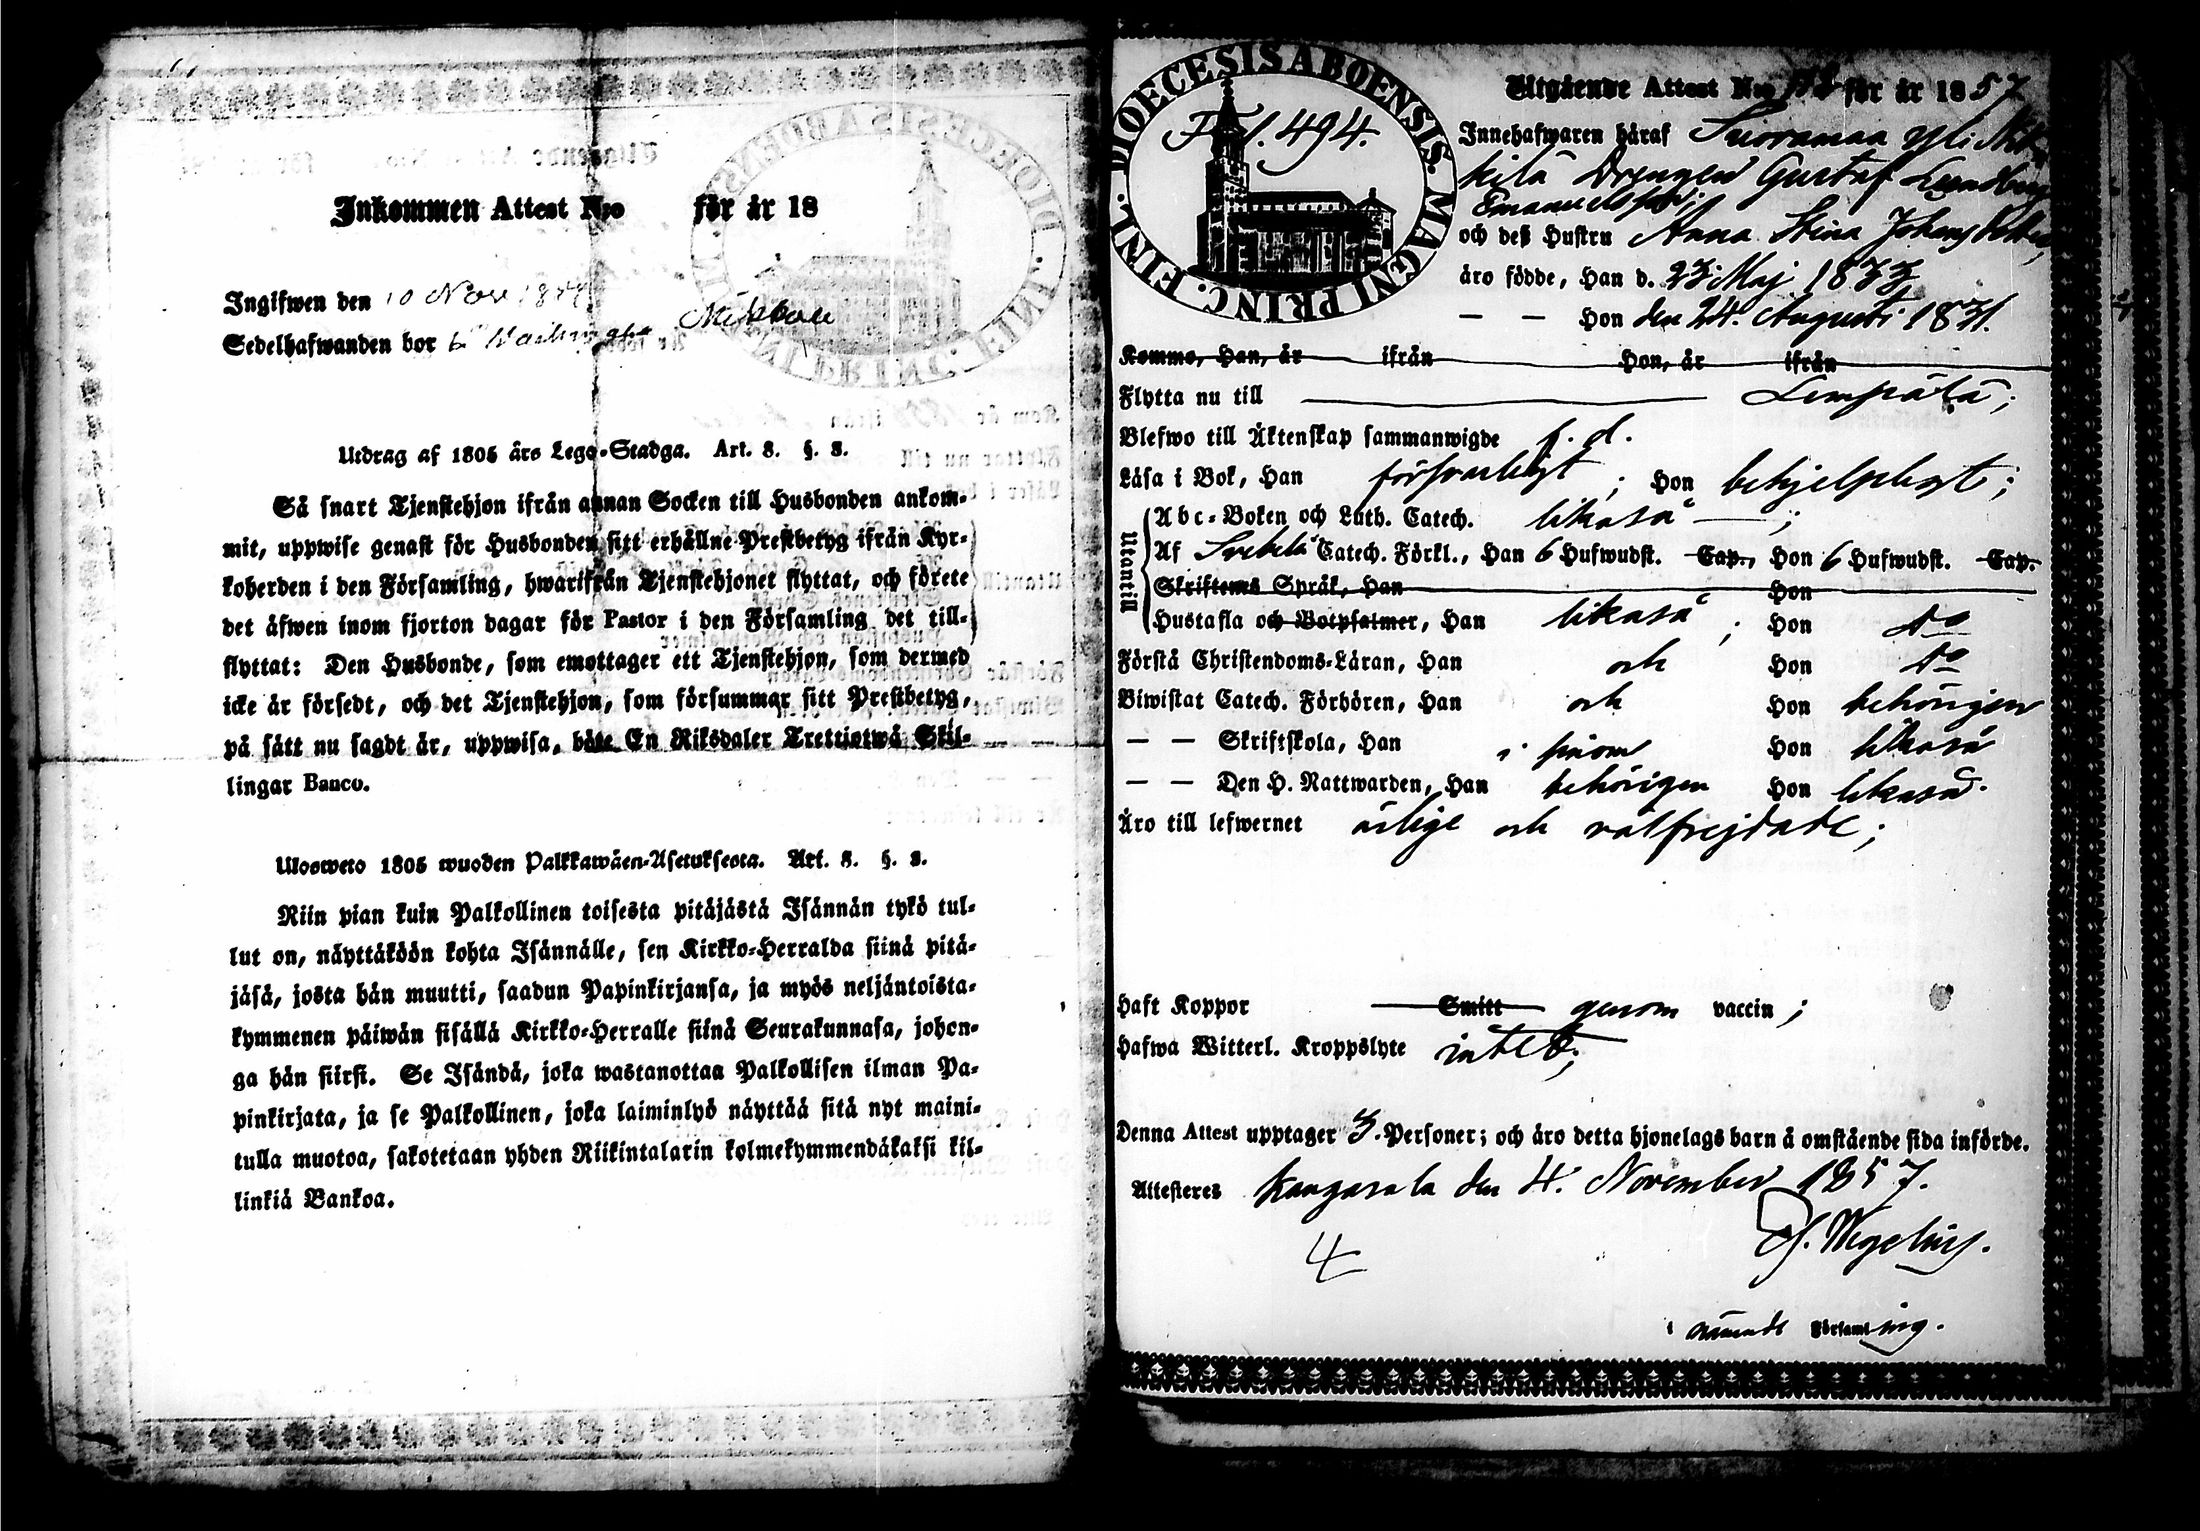 Inkommen Attest N:o för år 18
Ingifwen den 10 Nov 18
Sedelhafwanden bor
Utdrag af 1805 års Lego-Stadga. Art. 8. §. 8.
Så snart Tjenstehjon ifrån annan Socken till Husbonden ankom-
mit, uppwise genast för Husbonden sitt erhållne Prestbetyg ifrån Kyr-
koherden i den Församling, hwarifrån Tjenstehjonet flyttat, och förete
det äfwen inom fjorton dagar för Pastor i den Församling det till-
flyttat: Den Husbonde, som emottager ett Tjenstehjon, som dermed
icke är försedt, och det Tjenstehjon, som försummar sitt Prestbetyg,
på sätt nu sagdt är, uppwisa, böte En Riksdaler Trettiotwå Skil-
lingar Banco.
Ulosweto 1805 wuoden Palkkawäen-Asetuksesta. Art. 8. §. 8.
Niin pian kuin Palkollinen toisesta pitäjästä Isännän tykö tul-
lut on, näyttäköön kohta Isännälle, sen Kirkko-Herralda siinä pitä-
jäsä, josta hän muutti, saadun Papinkirjansa, ja myös neljäntoista-
kymmenen päiwän sisällä Kirkko-Herralle siinä Seurakunnasa, johon-
ga hän siirsi. Se Isändä, joka wastanottaa Palkollisen ilman Pa-
pinkirjata, ja se Palkollinen, joka laiminlyö näyttää sitä nyt maini-
tulla muotoa, sakotetaan yhden Riikintalarin kolmekymmendäkaksi kil-
linkiä Bankoa.
DIOECESIS ABOENSIS. MAGNI PRINC. FINL.
Fol. 494.
Utgående Attest N:o för år 1857
Innehafwaren häraf Suoramaa yli
kilä Drengen Gustaf Lundberg
Emanuelsson
och deß Hustru Anna Stina Johansdotter,
äro födde, Han d. 23 Maj 1833
— — Hon den 24. Augusti 1831.
Komme, Han, år ifrån Hon, år ifrån
Flytta nu till Lempälä;
Blefwo till Äktenskap sammanwigde f. d.
Läsa i Bok, Han försvarligt; Hon behjelpligt;
Utantill
Abc-Boken och Luth. Catech. likaså —;
Af Svebelii Catech. Förkl., Han 6 Hufwudst. Cap., Hon 6 Hufwudst. Cap.
Skriftens Språk, Han Hon
Hustafla och Botpsalmer, Han likaså; Hon d:o
Förstå Christendoms-Läran, Han och Hon d:o
Biwistat Catech. Förhören, Han och Hon behörigen
— — Skriftskola, Han Hon likaså
— — Den H. Nattwarden, Han behörigen Hon likaså.
Äro till lefwernet ärlige och välfrejdade;
Haft Koppor Smitt genom vaccin;
Hafwa Witterl. Kroppslyte intet;
Denna Attest upptager 3. Personer; och äro detta hjonelags barn å omstående sida införde.
Attesteres Kangasala den 4. November 1857.
Wegelius.
4
i nämnde Församling.